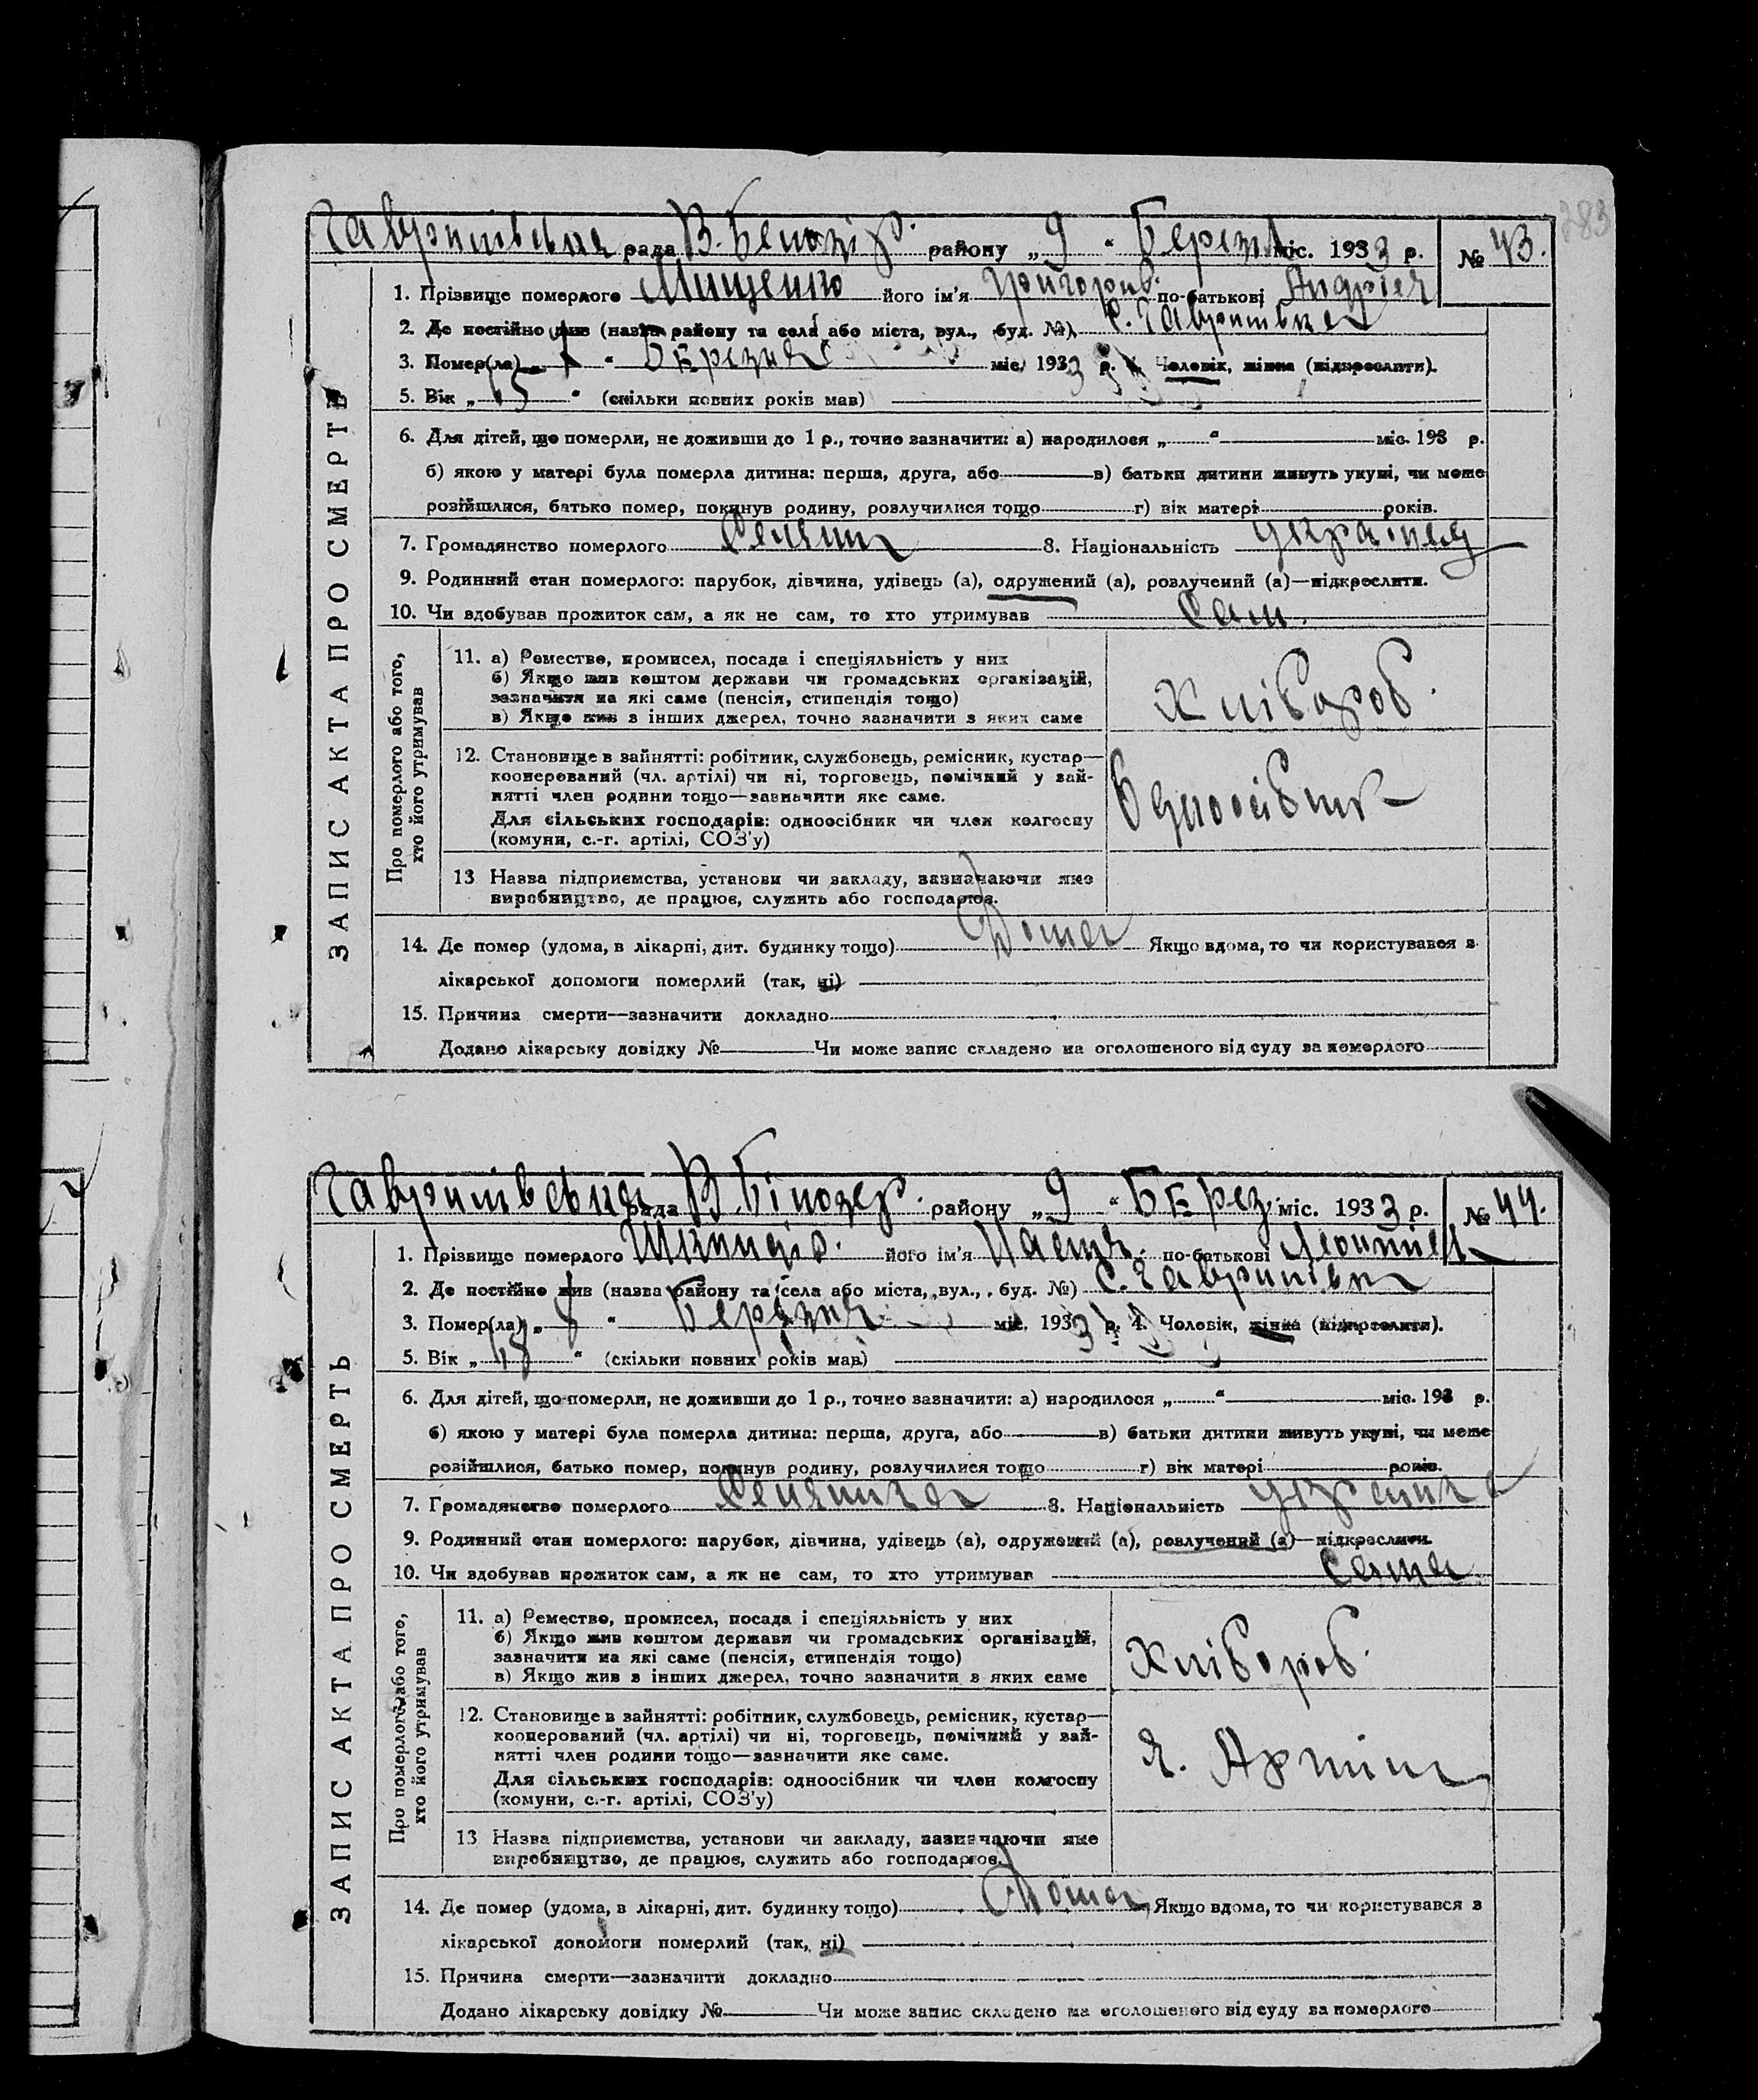 383
Гавришівська рада В. Білозір. району „ 9 “ Березня міс. 1933 р. № 43.
1. Прізвище померлого Мищенко його ім'я Григорив. по-батькові Андрієв
2. Де постійно жив (назва району та села або міста, вул., буд. №) с. Гавришівка
3. Помер(ла) „ “ Березня міс. 1933 р. 4. Чоловік, жінка (підкреслити).
5. Вік „ “ (скільки повних років мав)
6. Для дітей, що померли, не доживши до 1 р., точно зазначити: а) народилося „ “ міс. 193 р.
б) якою у матері була померла дитина: перша, друга, або в) батьки дитини живуть укупі, чи може
розійшлися, батько помер, покинув родину, розлучилися тощо г) вік матері років.
7. Громадянство померлого Селянин 8. Національність Українець
9. Родинний стан померлого: парубок, дівчина, удівець (а), одружений (а), розлучений (а)—підкреслити.
10. Чи здобував прожиток сам, а як не сам, то хто утримував Сам.
ЗАПИС АКТА ПРО СМЕРТЬ
Про померлого або того,
хто його утримував
11. а) Ремество, промисел, посада і спеціяльність у них
б) Якщо жив коштом держави чи громадських організацій,
зазначити на які саме (пенсія, стипендія тощо)
в) Якщо жив з інших джерел, точно зазначити з яких саме
Хлібороб.
12. Становище в зайнятті: робітник, службовець, ремісник, кустар—
кооперований (чл. артілі) чи ні, торговець, помічний у зай-
нятті член родини тощо—зазначити яке саме.
Для сільських господарів: одноосібник чи член колгоспу
(комуни, с.-г. артілі, СОЗ'у)
Одноосібник
13 Назва підприємства, установи чи закладу, зазначаючи яке
виробництво, де працює, служить або господарює.
14. Де помер (удома, в лікарні, дит. будинку тощо) Дома Якщо вдома, то чи користувався з
лікарської допомоги померлий (так, ні)
15. Причина смерти—зазначити докладно
Додано лікарську довідку № Чи може запис складено на оголошеного від суду за померлого
Гавришівська рада В. Білозер. району „ 9 “ Берез. міс. 1933 р. № 44.
1. Прізвище померлого його ім'я Настя по-батькові
2. Де постійно жив (назва району та села або міста, вул., буд. №) С. Гавришівка
3. Помер(ла) „ “ Березня міс. 1933 р. 4. Чоловік, жінка (підкреслити).
5. Вік „ “ (скільки повних років мав)
6. Для дітей, що померли, не доживши до 1 р., точно зазначити: а) народилося „ “ міс. 193 р.
б) якою у матері була померла дитина: перша, друга, або в) батьки дитини живуть укупі, чи може
розійшлися, батько помер, покинув родину, розлучилися тощо г) вік матері років.
7. Громадянство померлого Селянка 8. Національність Українка
9. Родинний стан померлого: парубок, дівчина, удівець (а), одружений (а), розлучений (а)—підкреслити.
10. Чи здобував прожиток сам, а як не сам, то хто утримував Сама
ЗАПИС АКТА ПРО СМЕРТЬ
Про померлого або того,
хто його утримував
11. а) Ремество, промисел, посада і спеціяльність у них
б) Якщо жив коштом держави чи громадських організацій,
зазначити на які саме (пенсія, стипендія тощо)
в) Якщо жив з інших джерел, точно зазначити з яких саме
Хлібороб.
12. Становище в зайнятті: робітник, службовець, ремісник, кустар—
кооперований (чл. артілі) чи ні, торговець, помічний у зай-
нятті член родини тощо—зазначити яке саме.
Для сільських господарів: одноосібник чи член колгоспу
(комуни, с.-г. артілі, СОЗ'у)
Ч. Артіли
13 Назва підприємства, установи чи закладу, зазначаючи яке
виробництво, де працює, служить або господарює.
14. Де помер (удома, в лікарні, дит. будинку тощо) Дома Якщо вдома, то чи користувався з
лікарської допомоги померлий (так, ні)
15. Причина смерти—зазначити докладно
Додано лікарську довідку № Чи може запис складено на оголошеного від суду за померлого